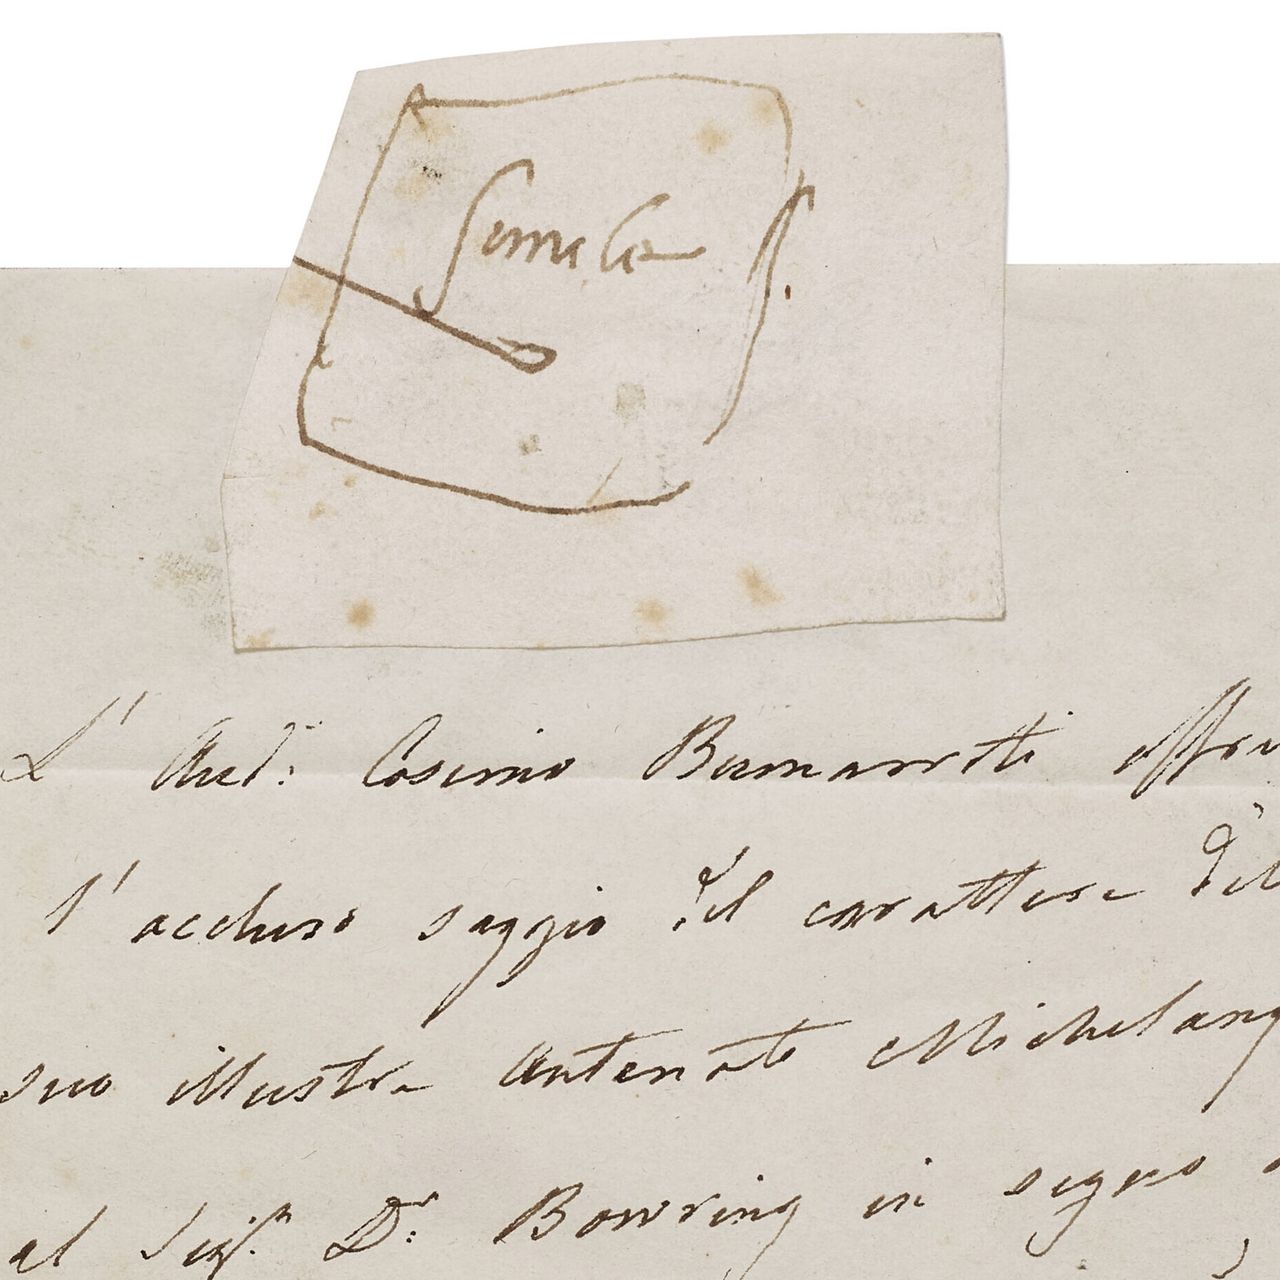 simile
L' Aud.: Cosimo Buonarroti offre
l'accluso saggio del carattere del
suo illustre Antenato Michelang
al Sigr. Dr: Bowring in segno